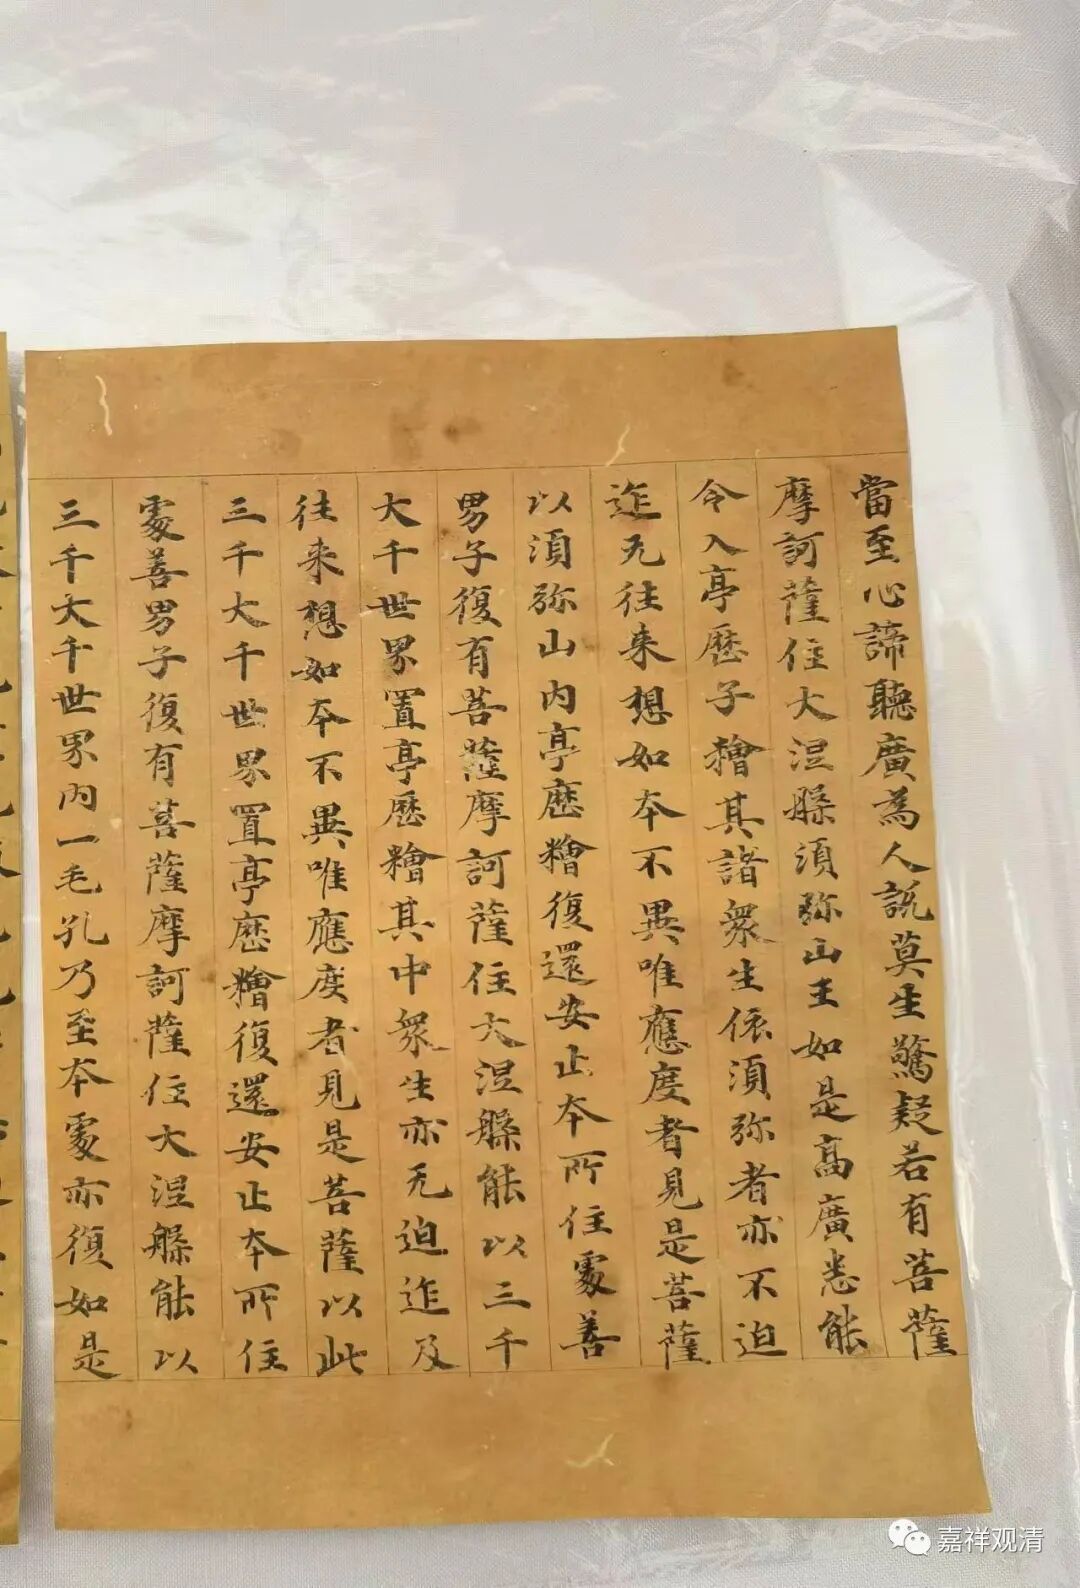 當至心諦聽廣為人説莫生驚疑若有菩薩
摩訶薩住大涅槃須弥山王如是髙廣悉能
令入亭歷子䊪其諸衆生依須弥者亦不迫
迮无往来想如本不異唯應度者見是菩薩
以須弥山内亭歷䊪復還安止本所住䖏善
男子復有菩薩摩訶薩住大涅槃能以三千
大千世界置亭歷䊪其中衆生亦无迫迮及
往来想如本不異唯應度者見是菩薩以此
三千大千世界置亭歷䊪復還安止本所住
䖏善男子復有菩薩摩訶薩住大涅槃能以
三千大千世界内一毛孔乃至本䖏亦復如是
嘉祥观清